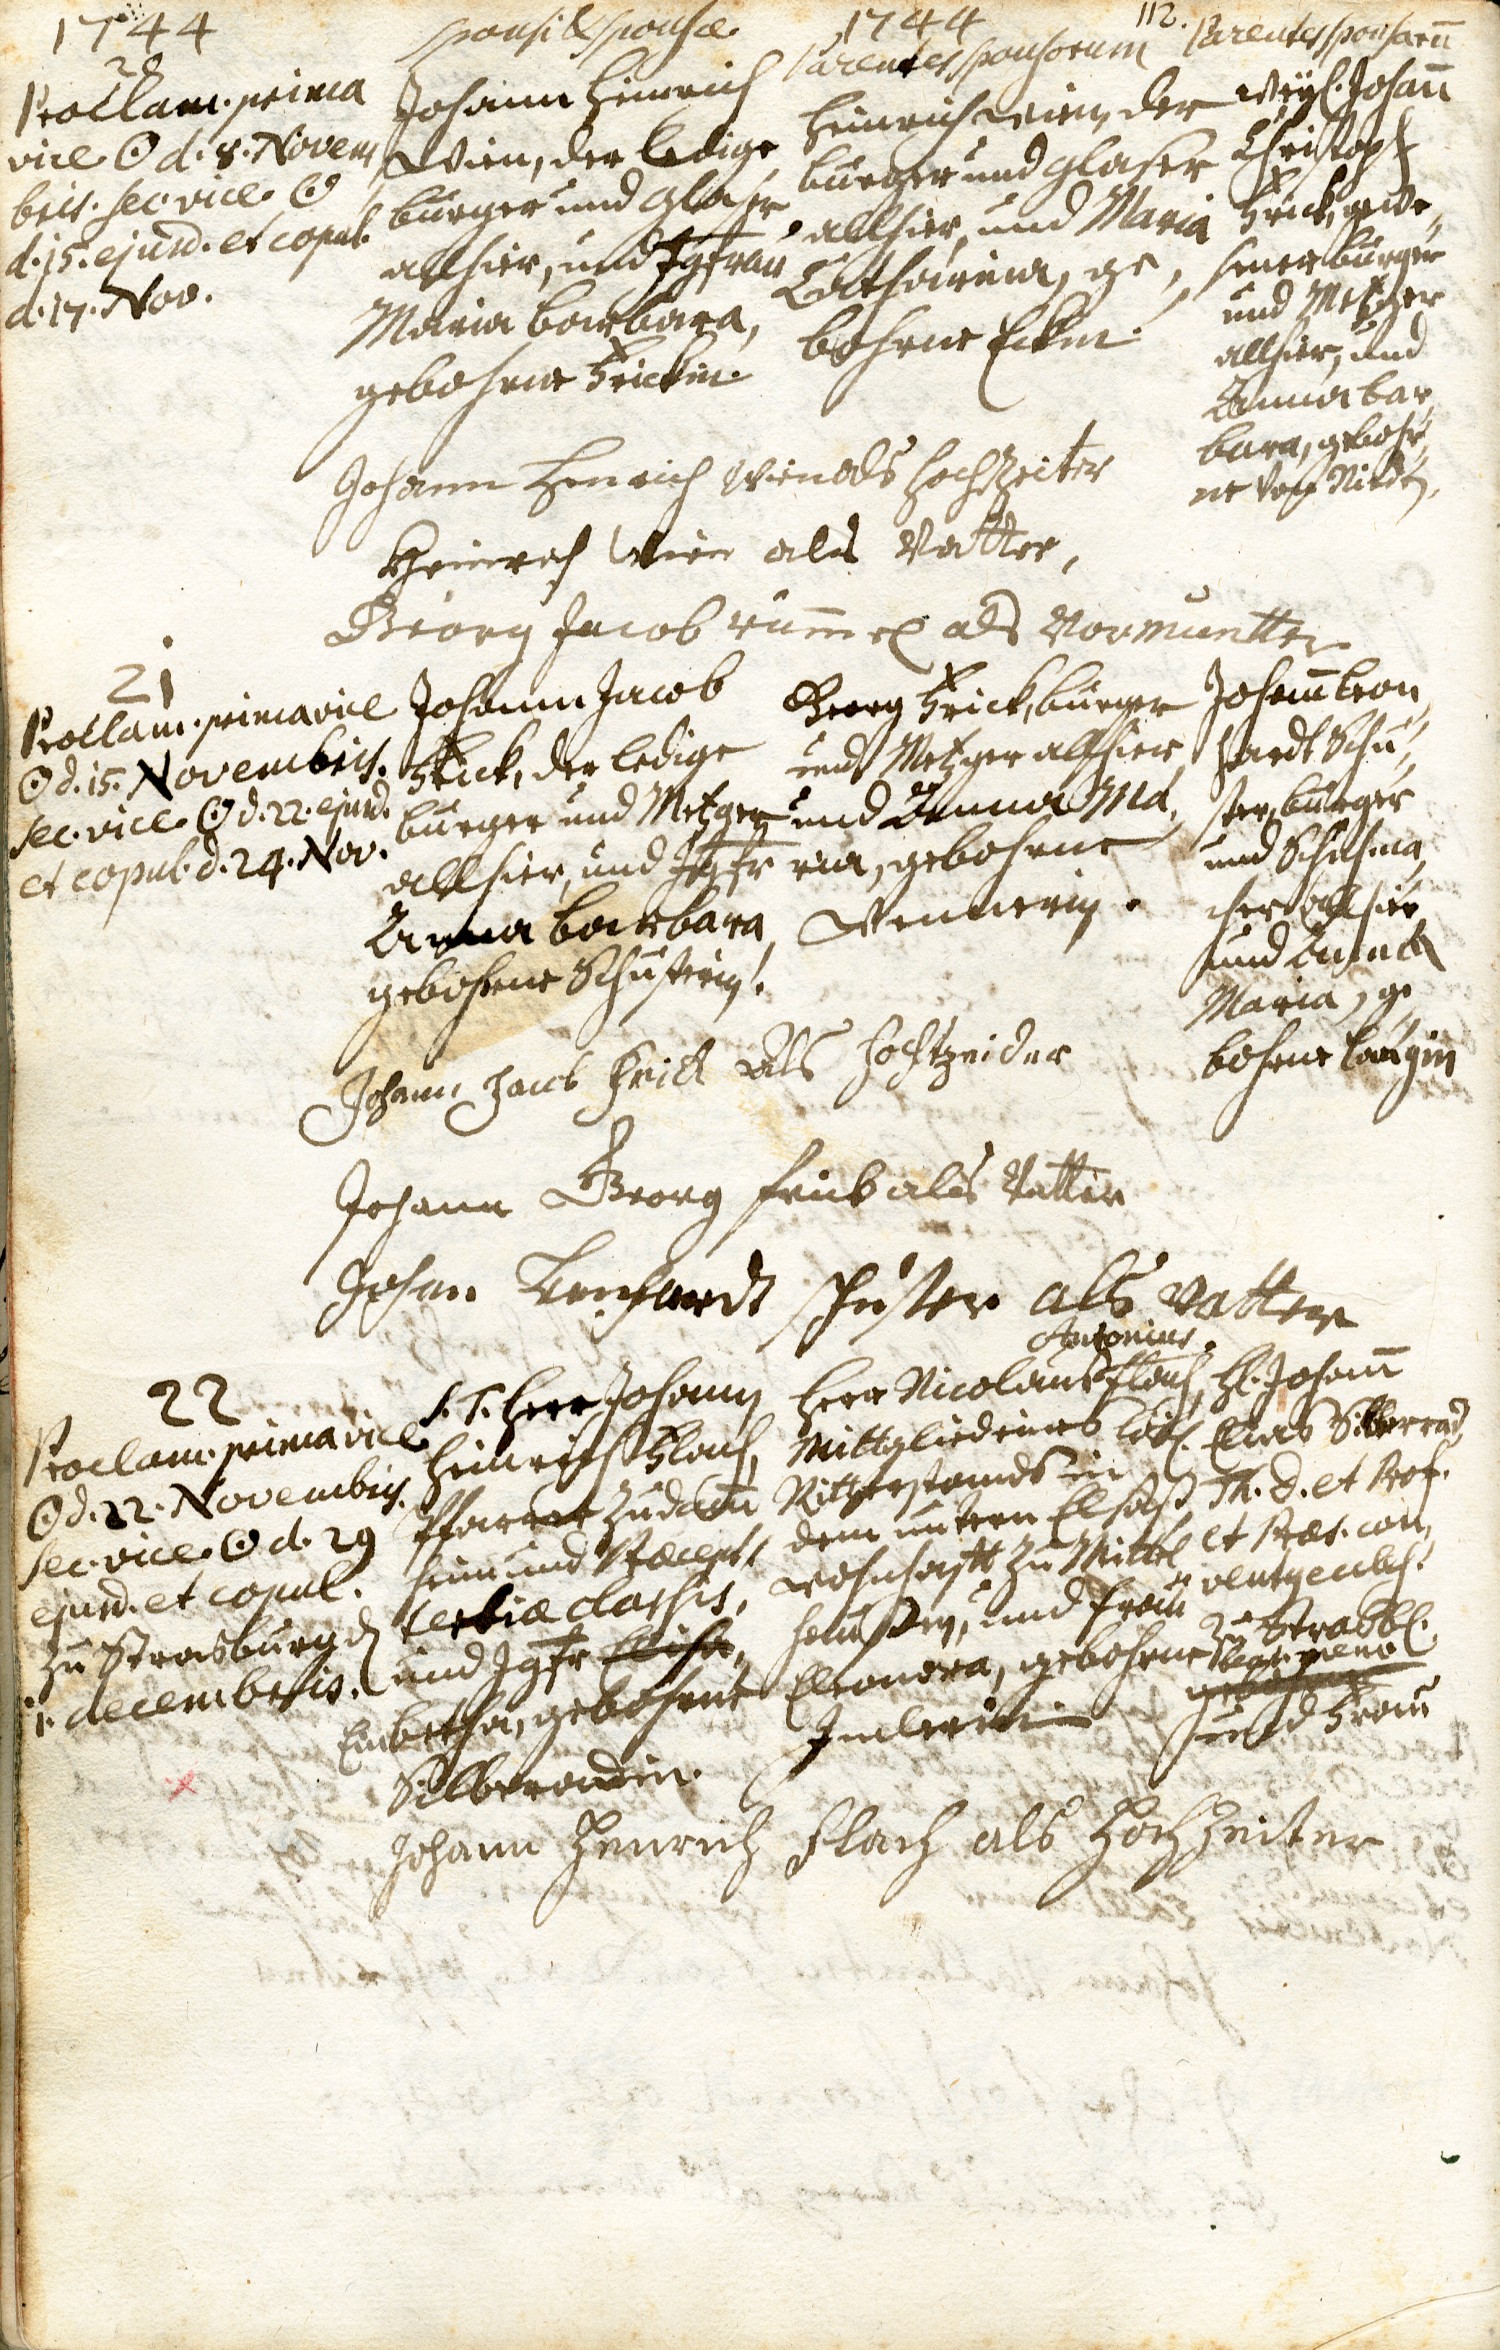 1744
sponsi & sponsæ
1744
112.
Parentes sponsorum
Parentes sponsarū
20
Proclam. prima
vice ☉ d. 8. Novem
bris. sec. vice ☉
d. 15. ejusd. et copul.
d. 17. Nov.
Johann Heinrich
Wien, der ledige
burger und glaser
allhier, und Jgfrau
Maria barbara,
gebohrne Frickin.
Heinrich Wien, der
burger und glaser
allhier, und Maria
Catharina, ge,
bohrne Eckin.
Weyl. Johañ
Christoph
Frick, gewe,
sener burger
und Metzger
allhier, und
Anna bar,
bara, gebohr,
ne von Nied
Johann Henrich Wien als Hochzeiter
Heinrich Wien als Vatter,
Georg Jacob als Vormuntter
21
Proclam. prima vice
☉ d. 15. Novembris.
sec. vice ☉ d. 22. ejusd.
et copul. d. 24. Nov.
Johann Jacob
Frick, der ledige
burger und Metzger
allhier, und Jgfr
Anna barbara,
gebohrne Schusterin.
Georg Frick, burger
und Metzger allhier,
und Anna Ma,
ria, gebohrne
Wennerin.
Johann Leon,
hardt Schu,
ster, burger
und Schuhma,
cher allhier
und
Maria, ge
bohrne Laugin
Johann Jacob Frick als Hochtzeider
Johann Georg Frick als Vatter
Johan Lenhardt Schuster als Vatter
22
Proclam. prima vice
☉ d. 22. Novembris.
sec. vice ☉ d. 29
ejusd. et copul.
zu Strasburg d
1. decembris.
S. T. Herr Johann
Heinrich Flach,
Pfarrer zu Dam
heim und Præcept.
tertiæ classis,
und Jgfr Elisa,
Em betha, gebohrne
Silberradin.
Antonius
Herr Nicolaus Flach,
Mittglied eines Löbl.
Ritterstands in
dem untern Elsaß,
wohnhafft zu Mittel
haussen, und frau
Eleonora, gebohrne
Imlerin
H. Johann
Elias Silberrad,
Th. D. et Prof.
et Præs. con,
vent. eccles.
zu Strasb.
gebohrne
und Frau
Johann Henrich Flach als Hochzeiter